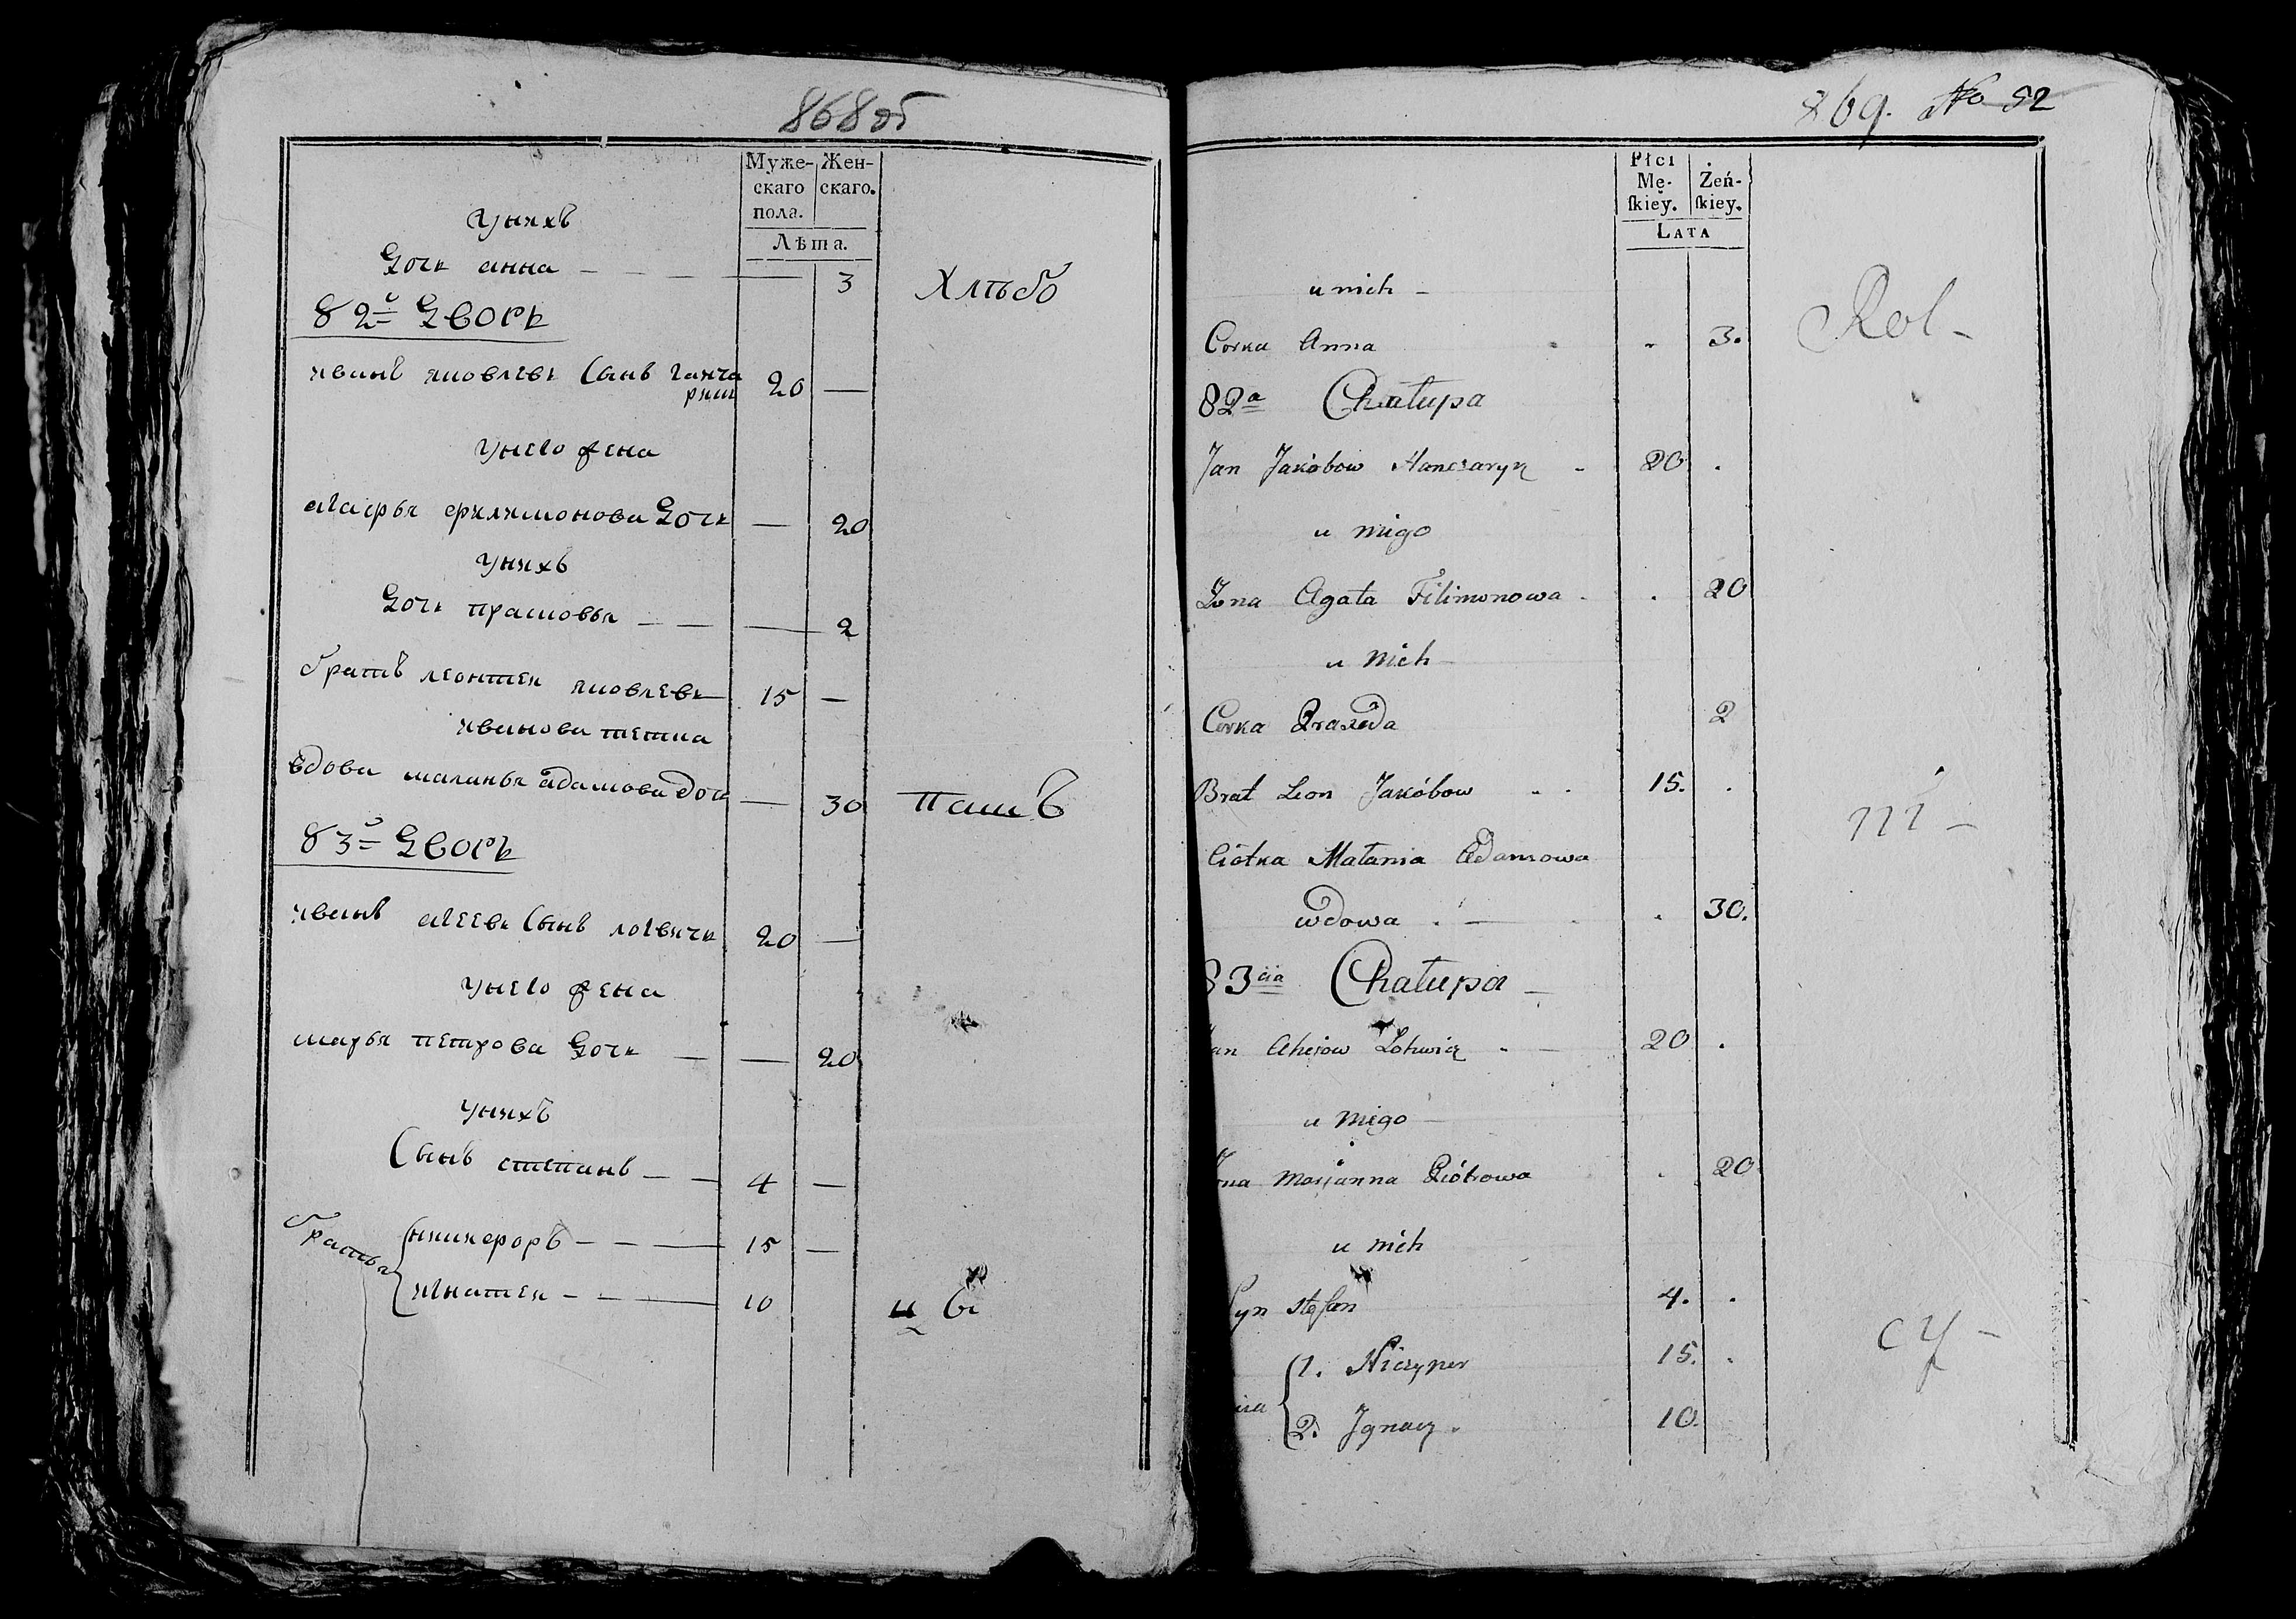 868 об
Муже- Жен-
скаго скаго.
пола.
Лѣта.
У нихъ
Дочь анна — — — — 3
Хлѣбо
82й Дворъ
иванъ яковлевъ Сынъ ганча
рикъ 20 —
У него жена
агафья филимонова Дочь — 20
У нихъ
Дочь прасковья — — — 2
братъ леонтей яковлевъ 15 —
иванова тетка
вдова маланья адамова дочь — 30
паш
83й Дворъ
иванъ агеевъ Сынъ логвичъ 20 —
У него жена
марья петрова Дочь — — 20
У нихъ
Сынъ степанъ — — 4 —
братья { никифоръ — — — 15 —
игнатей — — — 10
869. No 52
Płci
Mę- Żeń-
ſkiey. ſkiey.
LATA
u nich —
Corka Anna 3.
Rol-
82a Chałupa
Jan Jakóbow Hanczaryk - 20 .
u niego
Żona Agata Filimonowa . . 20
u nich
Corka Praxeda 2
Brat Leon Jakóbow . . 15. .
ni-
Ciotka Małania Adamowa
wdowa . — . 30.
83cia Chałupa —
Jan Aheiow Lohwicz . — 20 .
u niego —
Żona Marjanna Piótrowa . 20
u nich
Syn Stefan 4. .
cy-
{ 1. Niczyper 15. .
2. Jgnacy . 10.